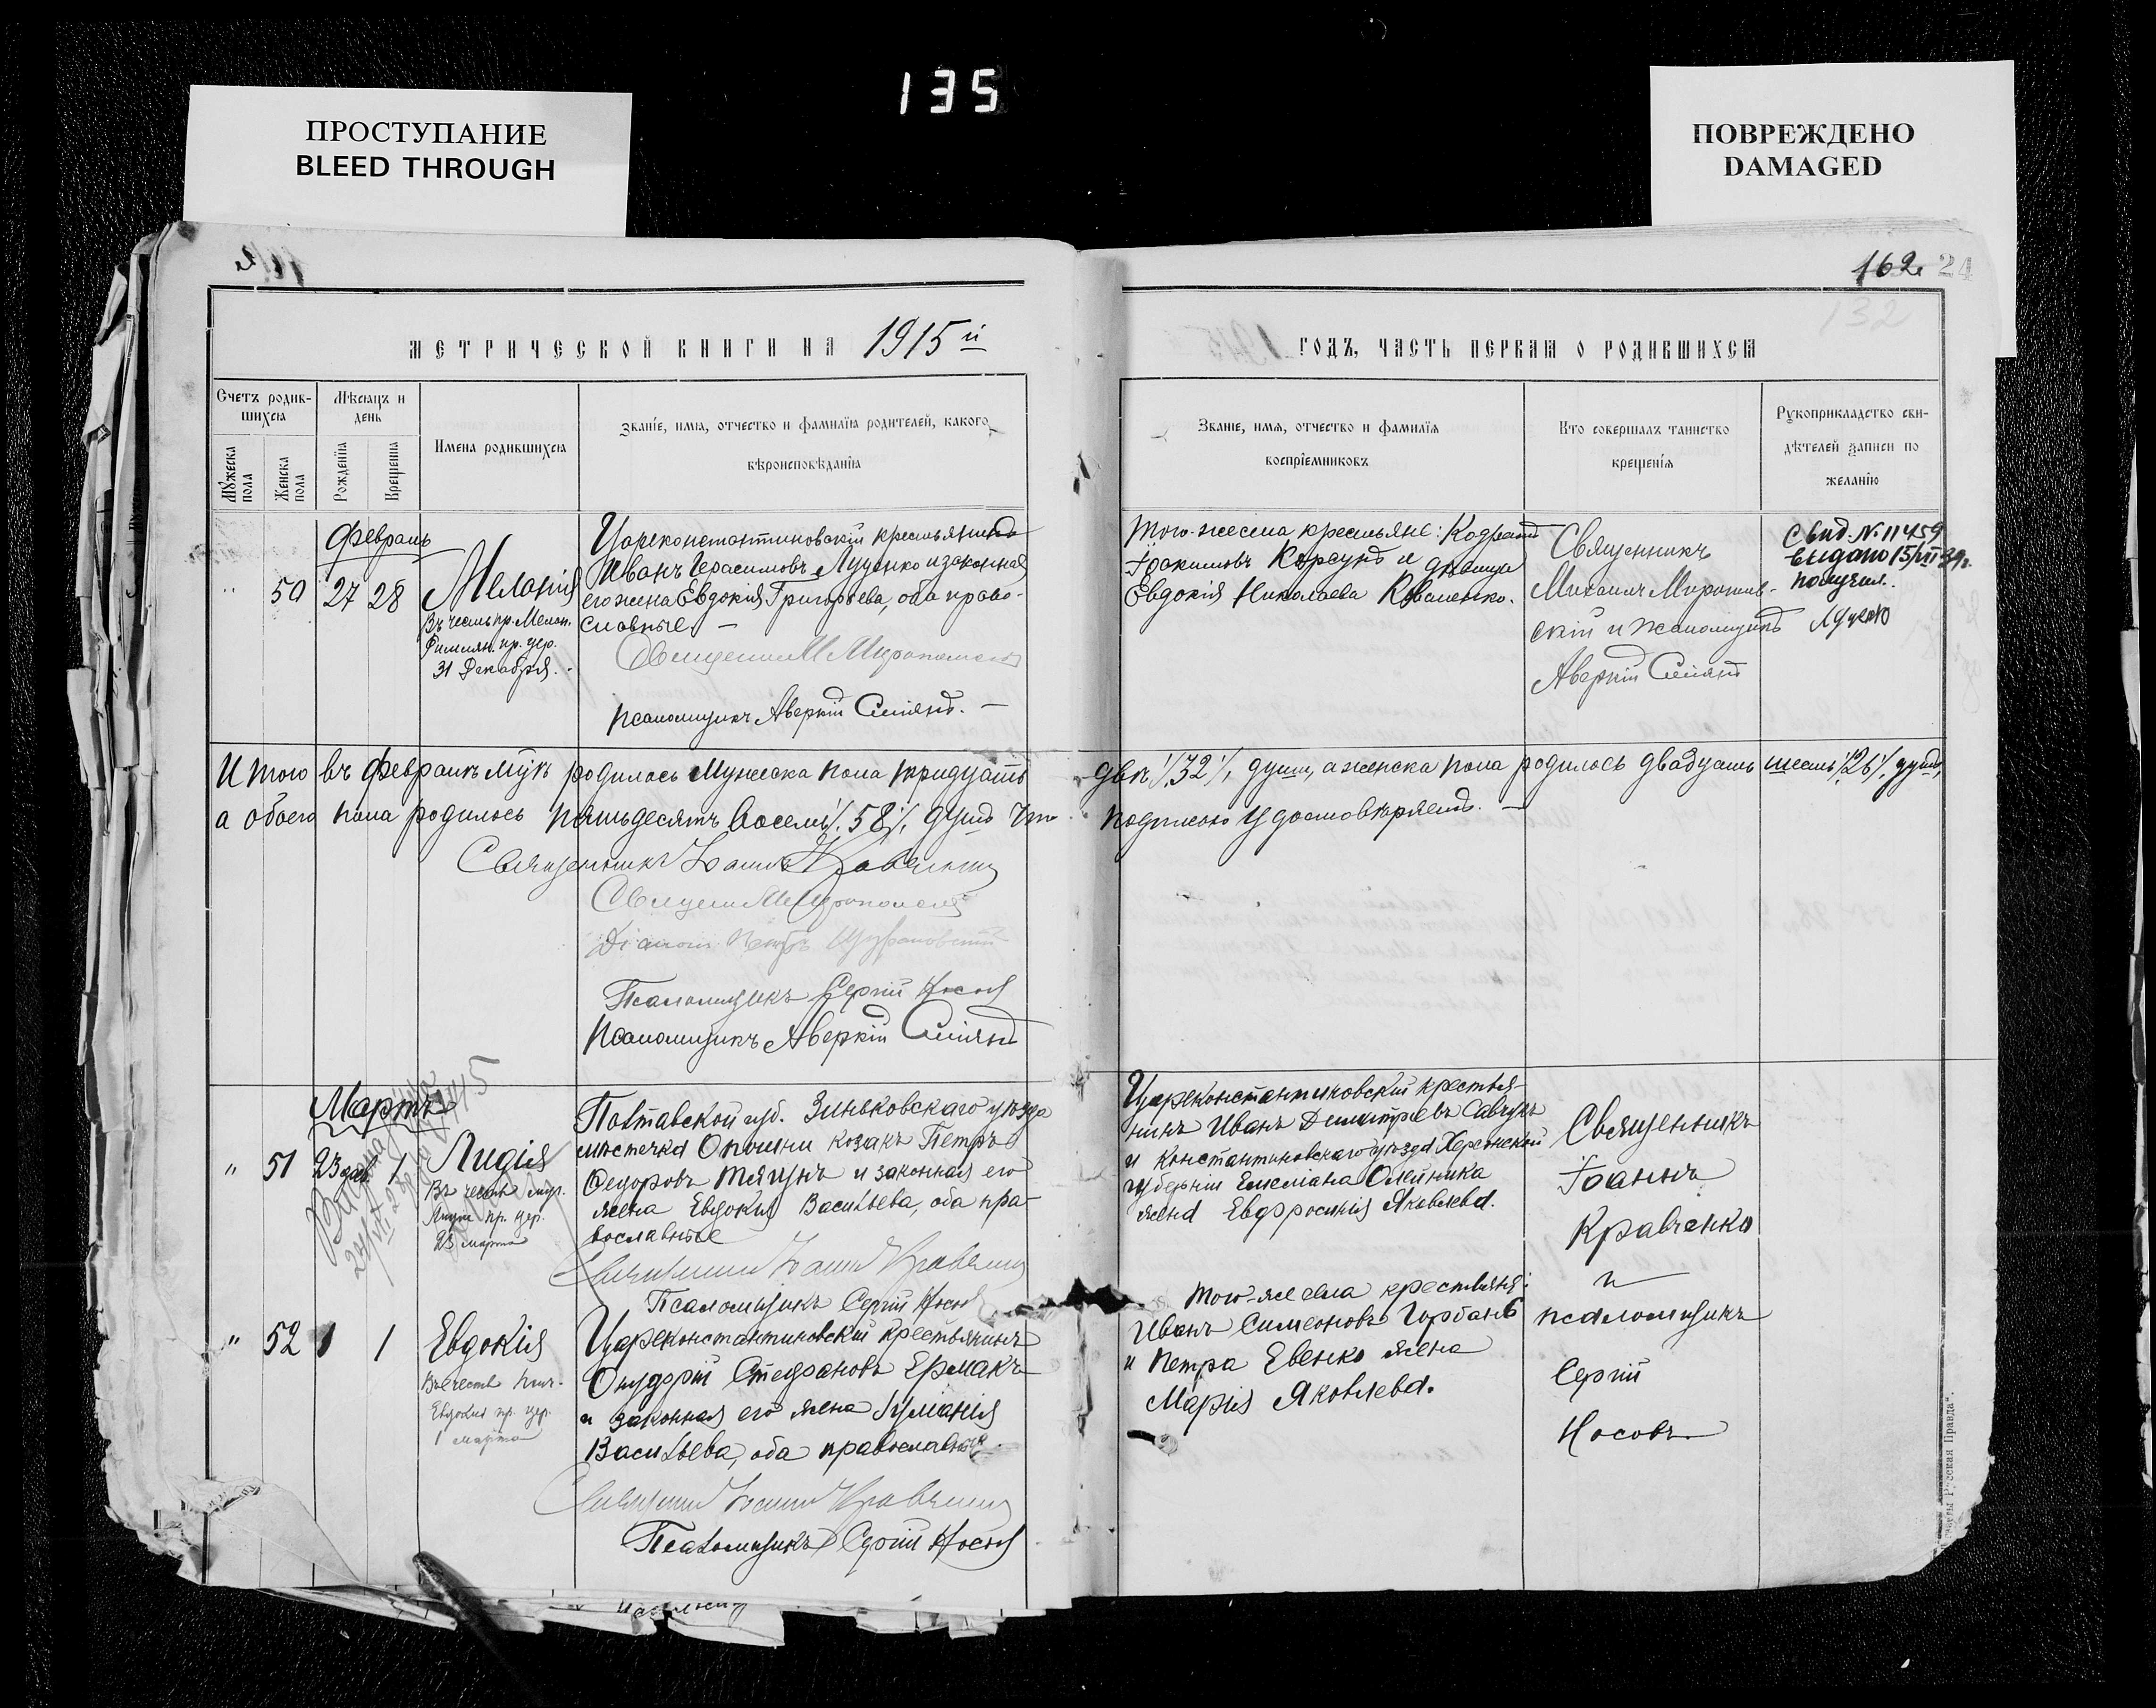 135
ПРОСТУПАНИЕ
BLEED THROUGH
ПОВРЕЖДЕНО
DAMAGED
162. 24
132
МЕТРИЧЕСКОЙ КНИГИ НА 1915й
ГОДЪ, ЧАСТЬ ПЕРВАЯ О РОДИВШИХСЯ
Счетъ родив-
шихся
Мужеска пола
Женска пола
Мѣсяцъ и
день
Рожденія
Крещенія
Имена родившихся
Званіе, имя, отчество и фамилія родителей, какого
вѣроисповѣданія
Званіе, имя, отчество и фамилія
воспріемниковъ
Кто совершалъ таинство
крещенія
Рукоприкладство сви-
дѣтелей записи по
желанію
Февраль
" 50 27 28
Меланія
Въ честь пр. Мелан.
Римлян. пр. цер.
31 Декабря.
Цареконстантиновскій крестьянинъ
Иванъ Герасимовъ Луценко и законная
его жена Евдокія Григорьева, оба право-
славные. —
Псаломщикъ Аверкій
Того-же села крестьяне: Кодратъ
Іоакимовъ Корсунъ и дѣвица
Евдокія Николаева Коваленко.
Священникъ
Михаилъ
скій и Псаломщикъ
Аверкій
Свид. № 11459
выдано 15/VII 39г.
получил.
Итого въ Февралѣ м-цѣ родилось Мужеска пола тридцать
двѣ /32/, души, а женска пола родилось двадцать шесть /26/, душъ,
а обоего пола родилось пятьдесятъ восемь /58/, душъ Что
подписью удостовѣряемъ. —
Священникъ Іоаннъ Кравченко
Псаломщикъ Сергій Носовъ
Псаломщикъ Аверкій
Мартъ
" 51 23 фев. 1
Лидія
Въ честь мцр.
Лидіи пр. цер.
23 марта
Полтавской губ. Зиньковскаго уѣзда
мѣстечка Опошни козакъ Петръ
Ѳедоровъ Тягунъ и законная его
жена Евдокія Васильева, оба пра-
вославные
Священникъ Іоаннъ Кравченко
Псаломщикъ Сергій Носовъ
Цареконстантиновскій крестья-
нинъ Иванъ Димитріевъ Савчукъ
и Константиновскаго уѣзда Херсонской
губерніи Емеліана Олейника
жена Евфросинія Яковлева.
Священникъ
Іоаннъ
Кравченко
и
псаломщикъ
Сергій
Носовъ
" 52 1 1
Евдокія
Въ честь
Евдокіи пр. цер.
1 марта
Цареконстантиновскій крестьянинъ
Онуфрій Стефановъ Ермакъ
и законная его жена Іуліанія
Васильева, оба православные.
Священникъ Іоаннъ Кравченко
Псаломщикъ Сергій Носовъ
Того-же села крестьяне:
Иванъ Симеоновъ Горбань
и Петра Евенко жена
Марія Яковлева.